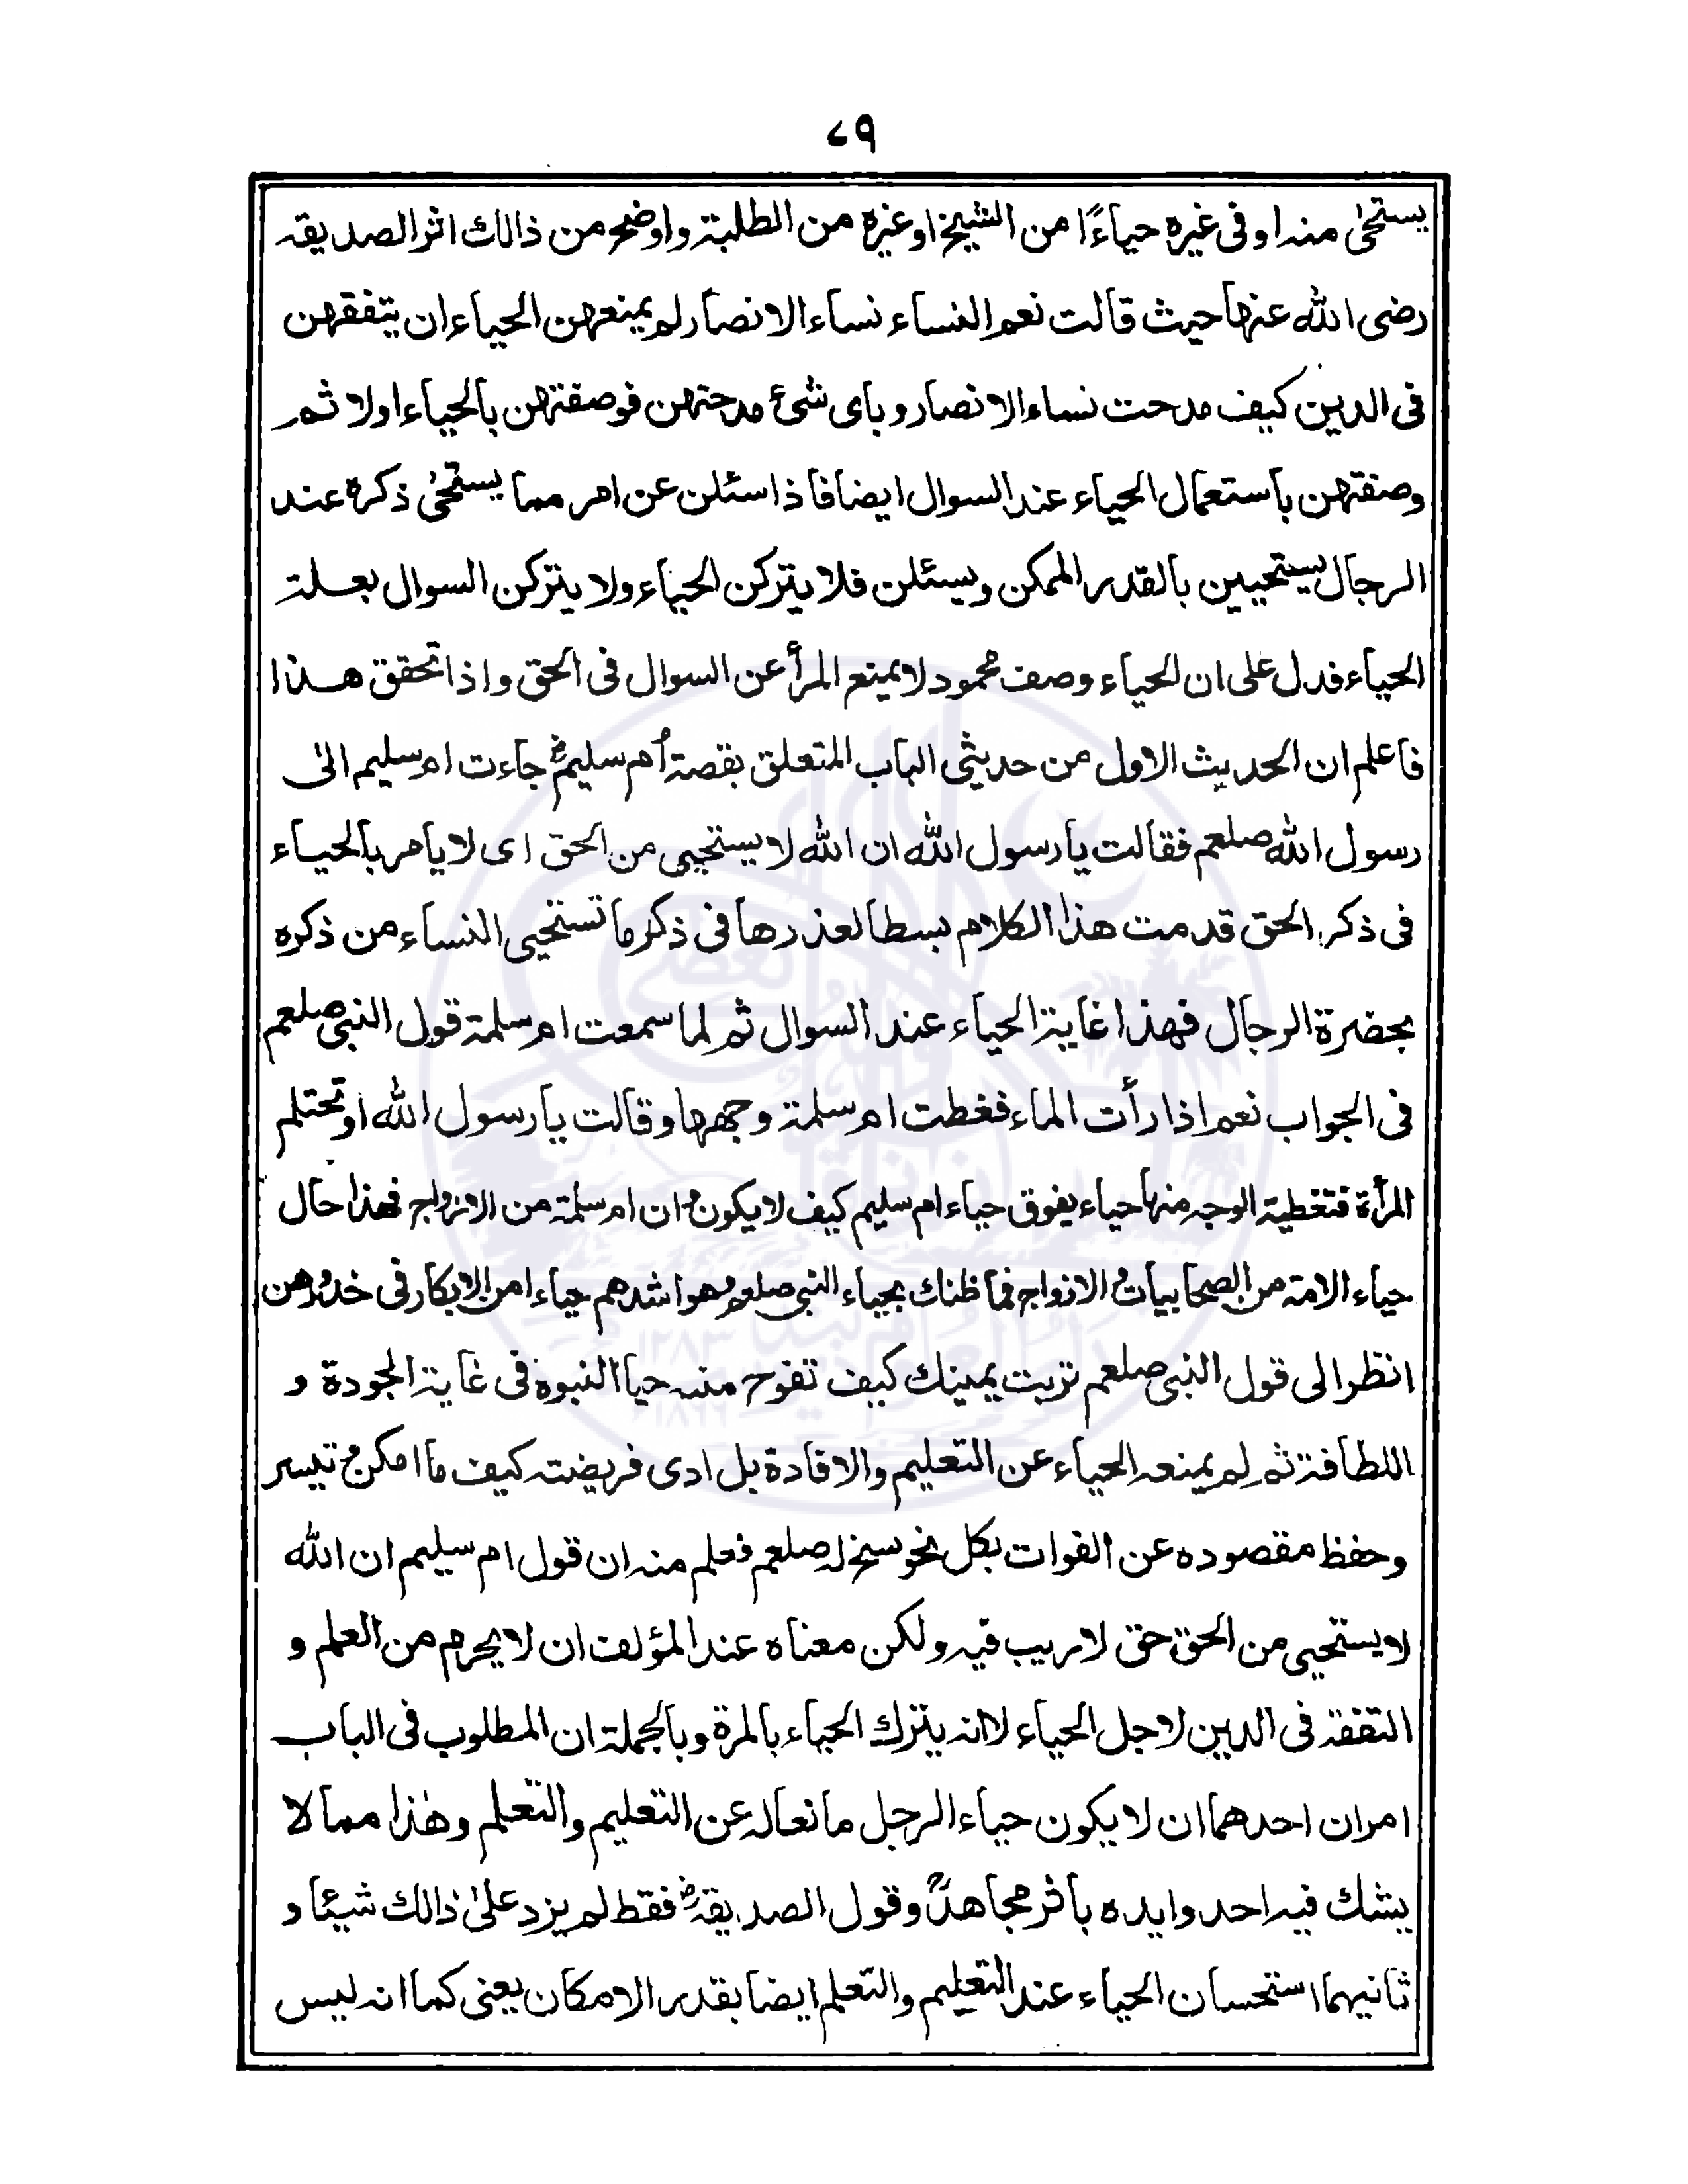 ٧٩
يستحىٰ منه او فى غيره حياءً ا من الشيخ او غيره من الطلبة واوضح من ذالك اثر الصديقه
رضى الله عنها حيث قالت نعم النساء نساء الانصار لم يمنعهن الحياء ان يتفقهن
فى الدين كيف مدحت نساء الانصار و باى شئ مدحتهن فوصفتهن بالحياء اولا ثم
وصفتهن باستعمال الحياء عند السوال ايضا فاذا سئلن عن امر مما يستحىٰ ذكره عند
الرجال يستحيين بالقدر الممكن ويسئلن فلا يتركن الحياء ولا يتركن السوال بعلة
الحياء فدل على ان الحياء وصف محمود لا يمنع المرأ عن السوال فى الحق واذا تحقق هذا
فاعلم ان الحديث الاول من حديثى الباب المتعلق بقصة أم سليمؓ جاءت ام سليم الىٰ
رسول الله صلعم فقالت يا رسول الله ان الله لا يستحيى من الحق اى لا يامر بالحياء
فى ذكر الحق قدمت هذا الكلام بسطا لعذرها فى ذكر ما تستحيى النساء من ذكره
بحضرة الرجال فهذا غاية الحياء عند السوال ثم لما سمعت ام سلمة قول النبى صلعم
فى الجواب نعم اذا رأت الماء فغطت ام سلمة وجهها وقالت يا رسول الله او تحتلم
المرأة فتغطية الوجه منها حياء يفوق حياء ام سليم كيف لا يكون و ان ام سلمة من الازواج فهذا حال
حياء الامة من الصحابيات و الازواج فما ظنك بحياء النبى صلعم و هو اشدهم حياء امن الابكار فى خدورهن
انظر الى قول النبى صلعم تربت يمينك كيف تفوح منه حيا النبوة فى غاية الجودة و
اللطافة ثم لم يمنعه الحياء عن التعليم والافادة بل ادى فريضته كيف ما امكن و تيسر
وحفظ مقصوده عن الفوات بكل نحو سنح له صلعم فعلم منه ان قول ام سليم ان الله
لا يستحيى من الحق حق لا ريب فيه ولكن معناه عند المؤلف ان لا يحرم من العلم و
التفقه فى الدين لاجل الحياء لا انه يترك الحياء بالمرة وبالجملة ان المطلوب فى الباب
امران احدهما ان لا يكون حياء الرجل مانعا له عن التعليم والتعلم وهٰذا مما لا
يشك فيه احد وايده باثر مجاهدؒ وقول الصديقةؓ فقط لم يزد علىٰ ذالك شيئا و
ثانيهما استحسان الحياء عند التعليم والتعلم ايضا بقدر الامكان يعنى كما انه ليس